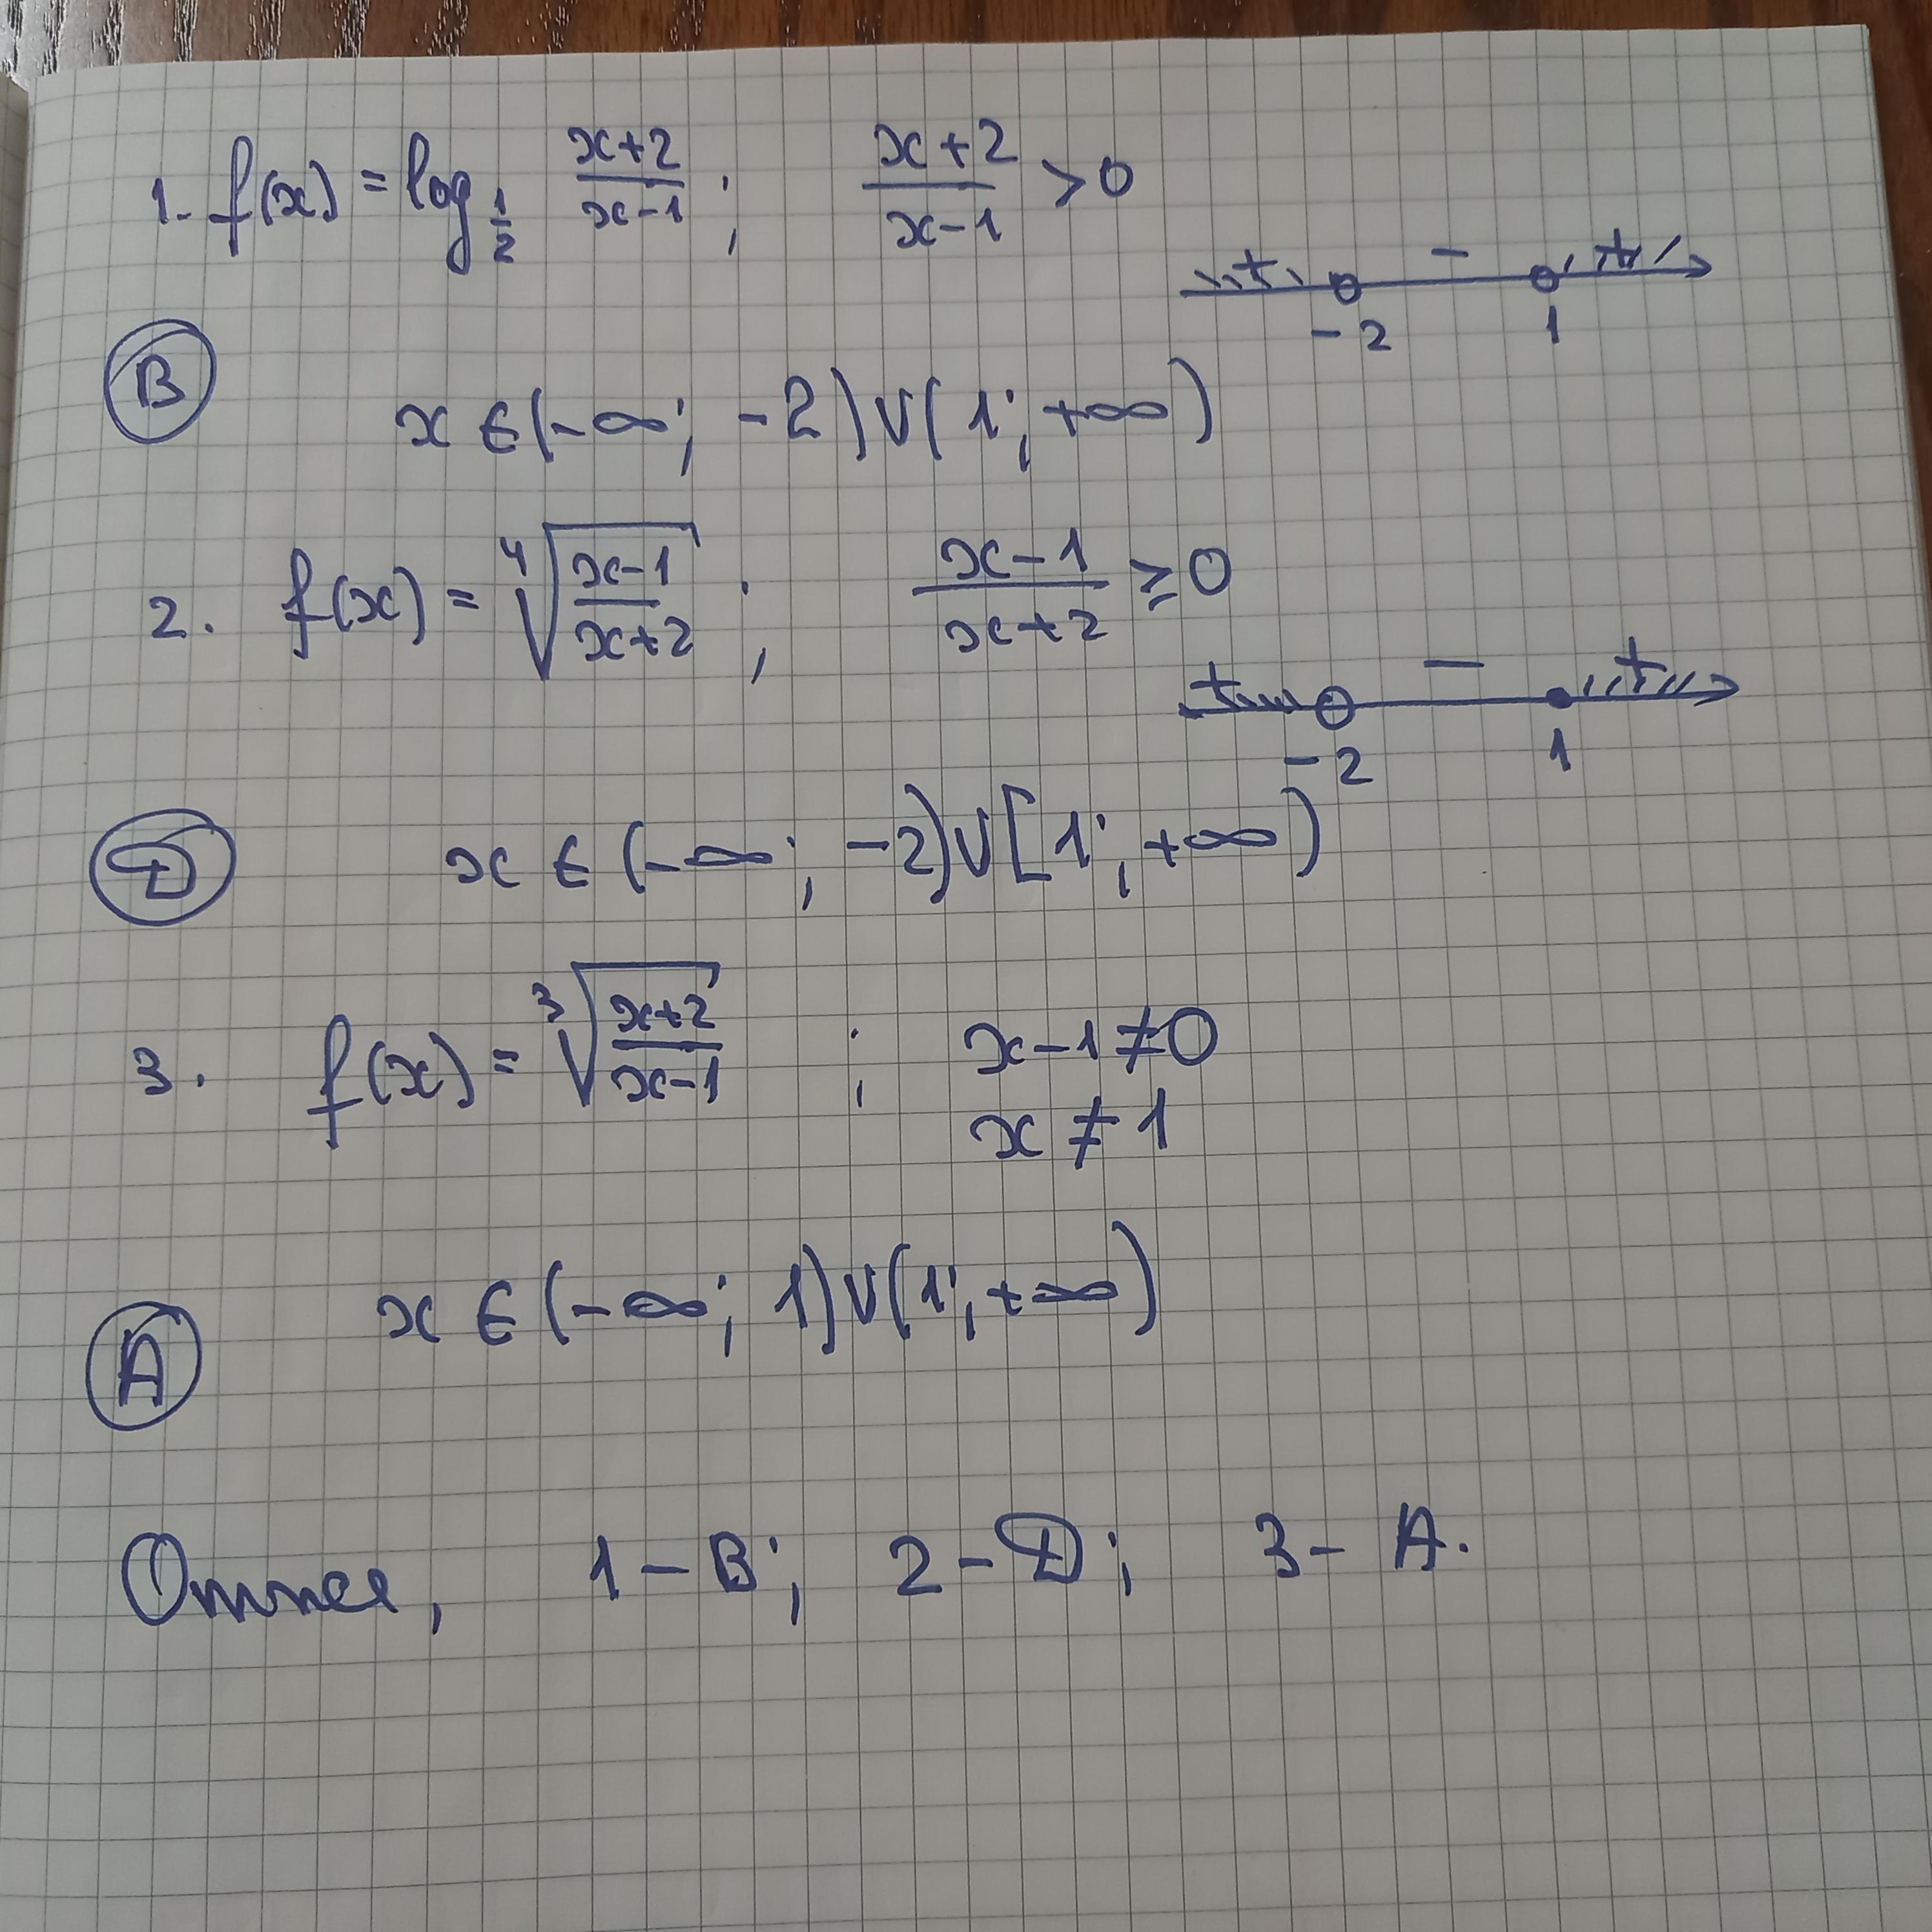 1. f(x) = log_{1/2} (x+2)/(x-1); (x+2)/(x-1) > 0
+ - +
-2 1
B
x ∈ (-∞; -2) ∪ (1; +∞)
2. f(x) = ⁴√((x-1)/(x+2)); (x-1)/(x+2) ≥ 0
+ - +
-2 1
D
x ∈ (-∞; -2) ∪ [1; +∞)
3. f(x) = ³√((x+2)/(x-1)); x-1 ≠ 0
x ≠ 1
x ∈ (-∞; 1) ∪ (1; +∞)
A
Отже, 1 - B; 2 - D; 3 - A.